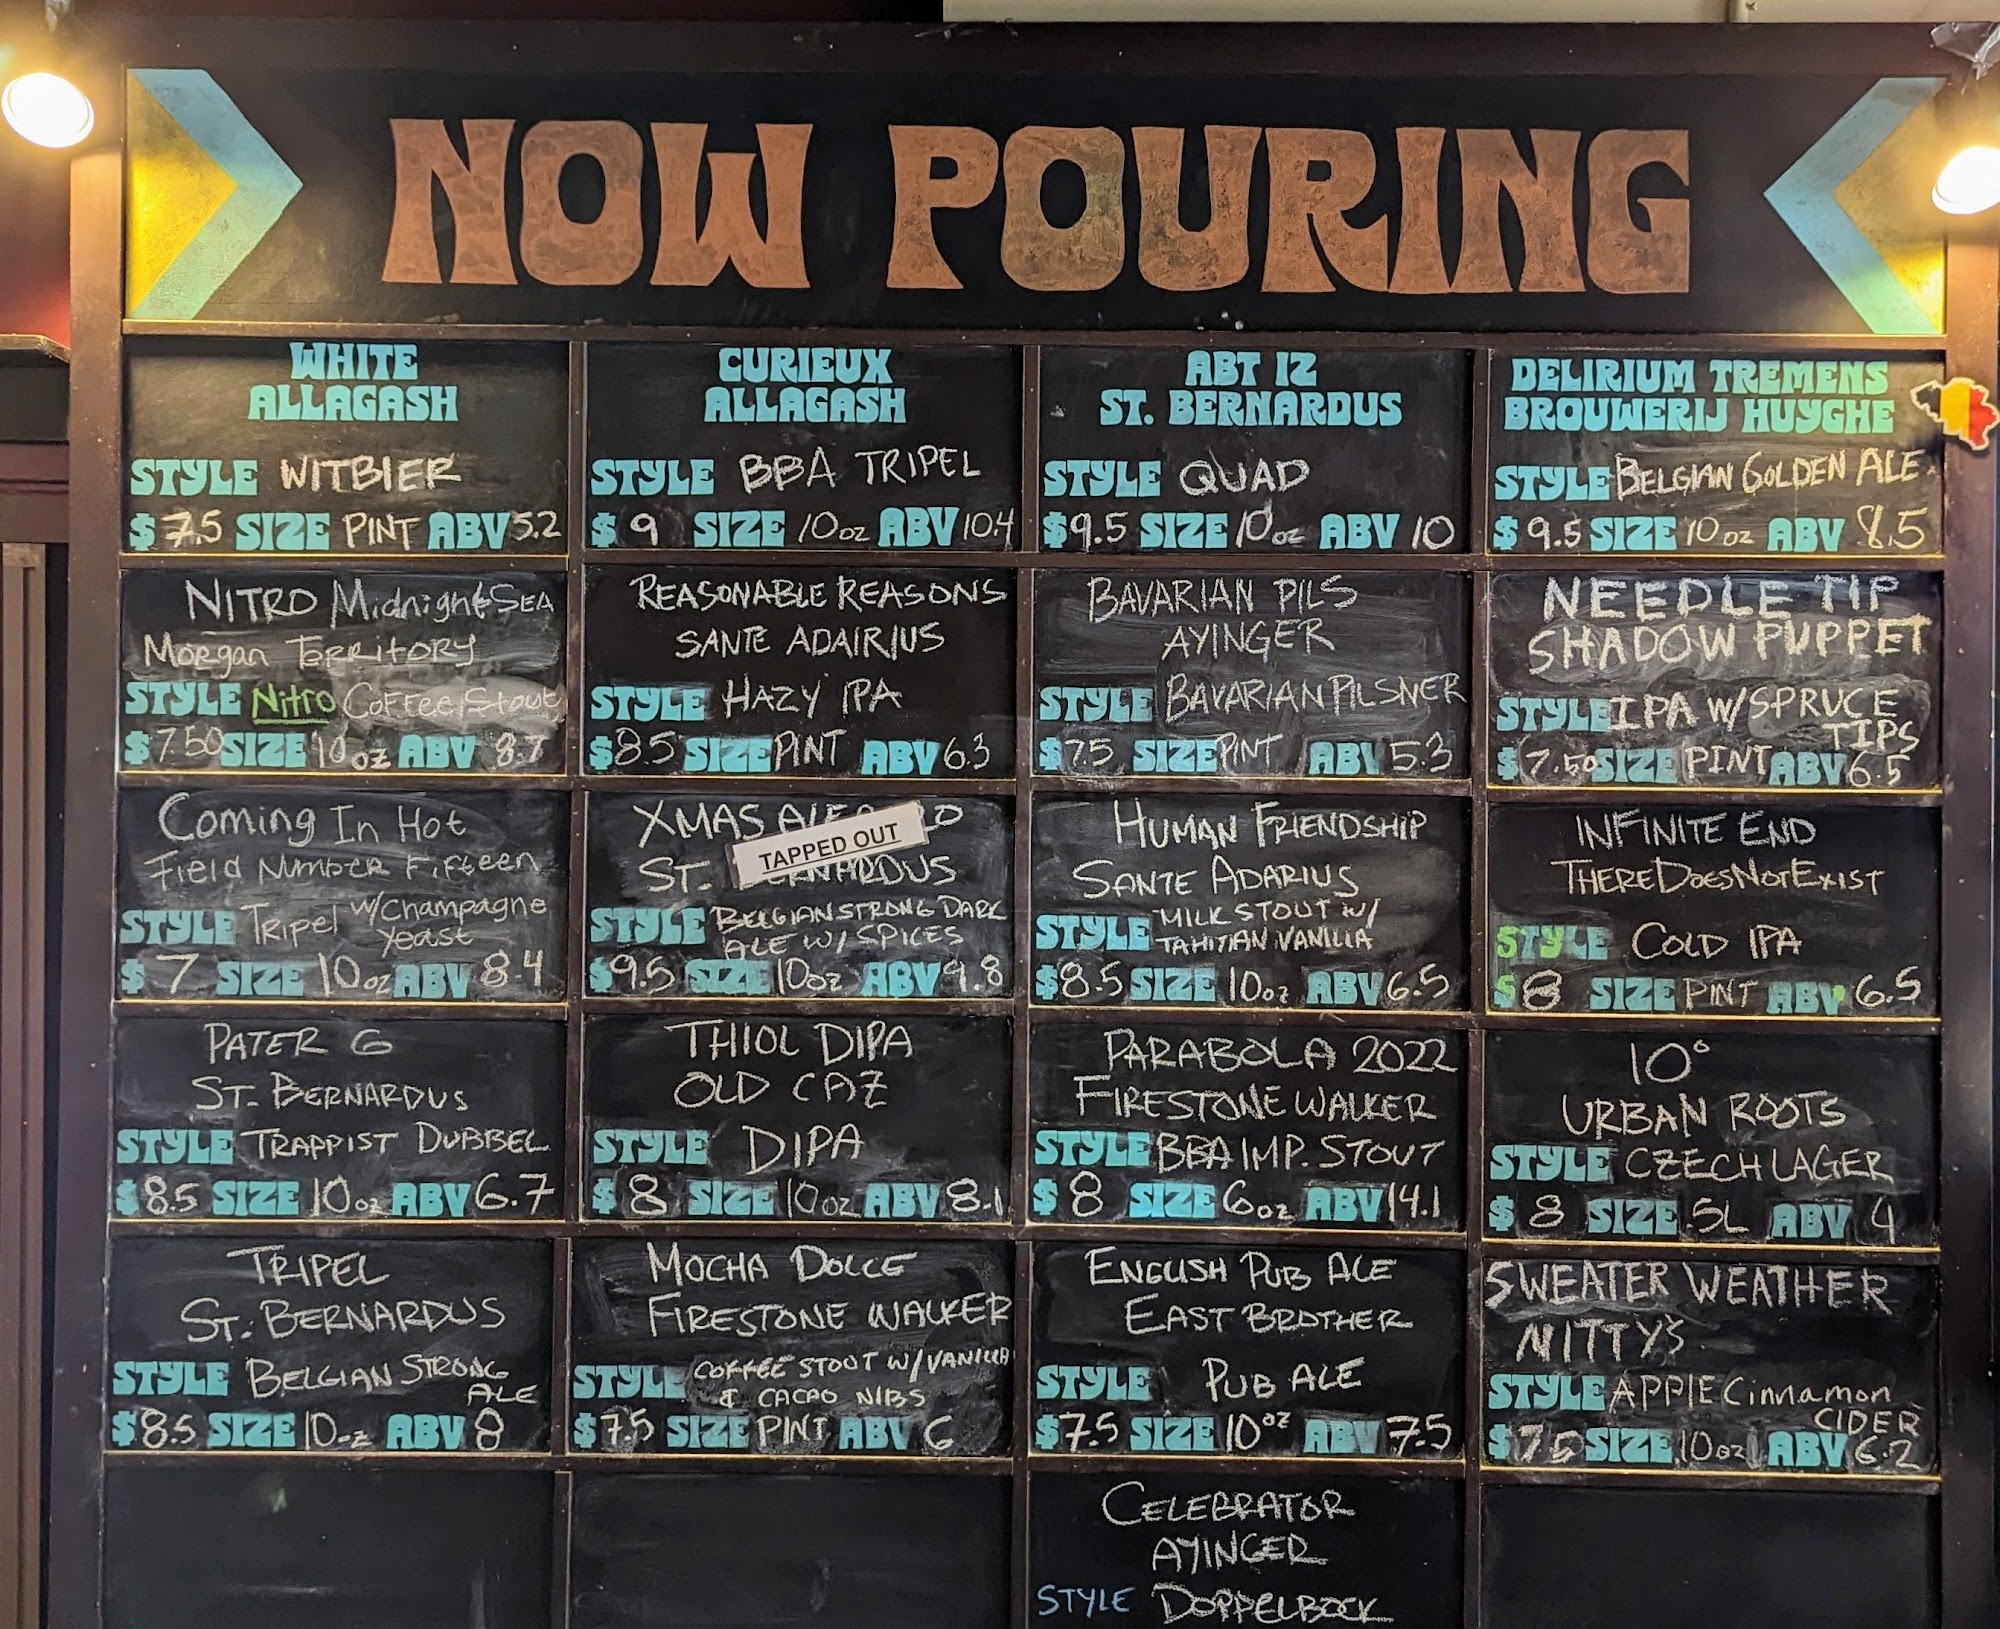 NOW POURING
WHITE
ALLAGASH
STYLE WITBIER
$ 7.5 SIZE PINT ABV 5.2
CURIEUX
ALLAGASH
STYLE BBA TRIPEL
$ 9 SIZE 10oz ABV 10.4
ABT 12
ST. BERNARDUS
STYLE QUAD
$ 9.5 SIZE 10oz ABV 10
DELIRIUM TREMENS
BROUWERIJ HUYGHE
STYLE BELGIAN GOLDEN ALE
$ 9.5 SIZE 10oz ABV 8.5
NITRO Midnight SEA
Morgan TERRITORY
STYLE Nitro Coffee Stout
$ 7.50 SIZE 10oz ABV 8.7
REASONABLE REASONS
SANTE ADAIRIUS
STYLE HAZY IPA
$ 8.5 SIZE PINT ABV 6.3
BAVARIAN PILS
AYINGER
STYLE BAVARIAN PILSNER
$ 7.5 SIZE PINT ABV 5.3
NEEDLE TIP
SHADOW PUPPET
STYLE IPA W/SPRUCE
TIPS
$ 7.50 SIZE PINT ABV 6.5
Coming In Hot
Field Number Fifteen
STYLE Tripel w/Champagne
yeast
$ 7 SIZE 10oz ABV 8.4
XMAS ALE
TAPPED OUT
ST. BERNARDUS
STYLE BELGIAN STRONG DARK
ALE W/ SPICES
$ 9.5 SIZE 10oz ABV 9.8
HUMAN FRIENDSHIP
SANTE ADARIUS
STYLE MILK STOUT W/
TAHITIAN VANILLA
$ 8.5 SIZE 10oz ABV 6.5
INFINITE END
THERE DOES NOT EXIST
STYLE COLD IPA
$ 8 SIZE PINT ABV 6.5
PATER 6
ST. BERNARDUS
STYLE TRAPPIST DUBBEL
$ 8.5 SIZE 10oz ABV 6.7
THIOL DIPA
OLD CAZ
STYLE DIPA
$ 8 SIZE 10oz ABV 8.1
PARABOLA 2022
FIRESTONE WALKER
STYLE BBA IMP. STOUT
$ 8 SIZE 6oz ABV 14.1
10°
URBAN ROOTS
STYLE CZECH LAGER
$ 8 SIZE .5L ABV 4
TRIPEL
ST. BERNARDUS
STYLE BELGIAN STRONG
ALE
$ 8.5 SIZE 10oz ABV 8
MOCHA DOLCE
FIRESTONE WALKER
STYLE COFFEE STOUT W/VANILLA
& CACAO NIBS
$ 7.5 SIZE PINT ABV 6
ENGLISH PUB ALE
EAST BROTHER
STYLE PUB ALE
$ 7.5 SIZE 10oz ABV 7.5
SWEATER WEATHER
NITTY'S
STYLE APPLE Cinnamon
CIDER
$ 7.5 SIZE 10oz ABV 6.2
CELEBRATOR
AYINGER
STYLE DOPPELBOCK